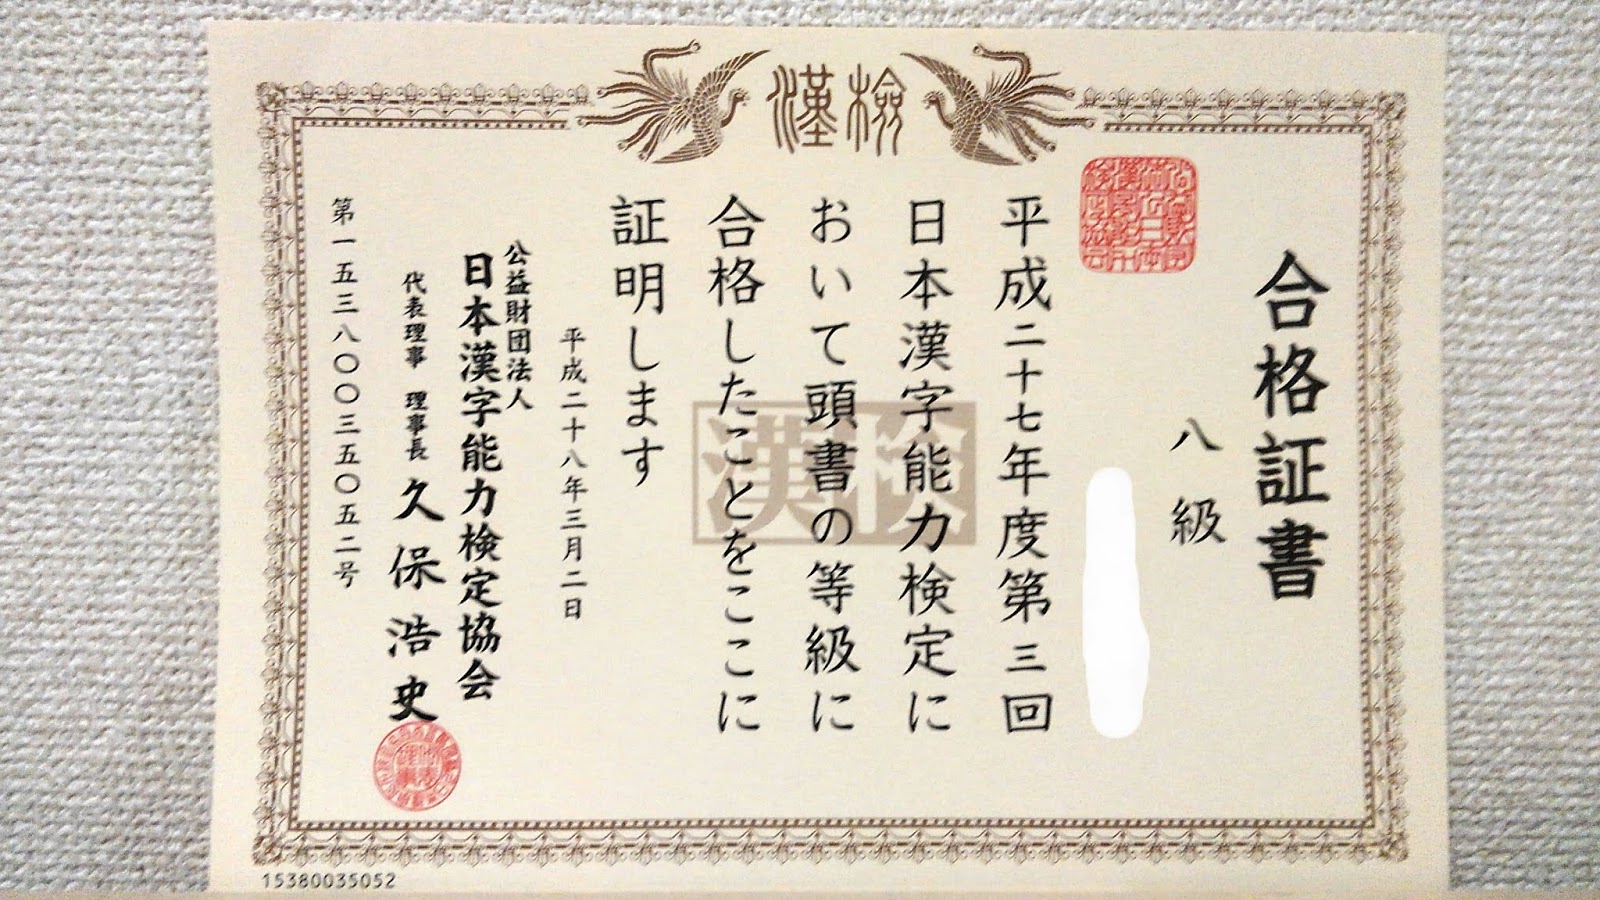 漢検
合格証書
八級
平成二十七年度第三回
日本漢字能力検定に
おいて頭書の等級に
合格したことをここに
証明します
平成二十八年三月二日
公益財団法人
日本漢字能力検定協会
代表理事 理事長 久保浩史
第一五三八〇〇三五〇五二号
漢検
15380035052